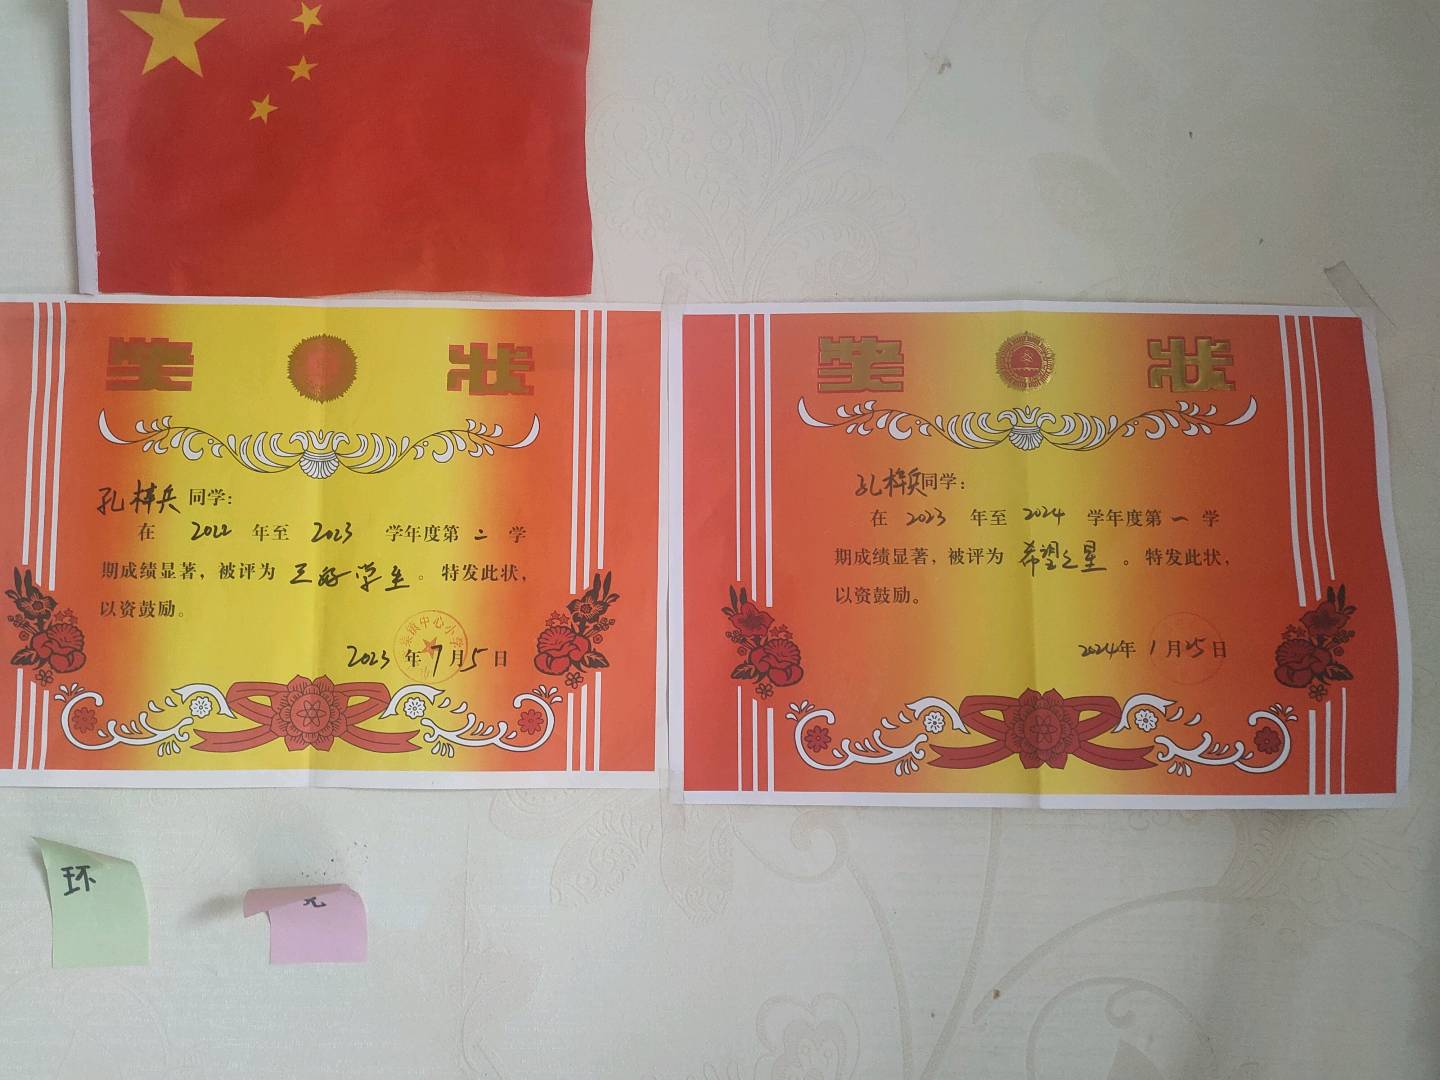 奖 状
孔梓兵 同学:
在 2022 年至 2023 学年度第 二 学
期成绩显著，被评为 三好学生 。特发此状，
以资鼓励。
镇中心小学
2023 年 7 月 5 日
奖 状
孔梓兵同学:
在 2023 年至 2024 学年度第 一 学
期成绩显著，被评为 希望之星 。特发此状，
以资鼓励。
2024年 1 月 25 日
环